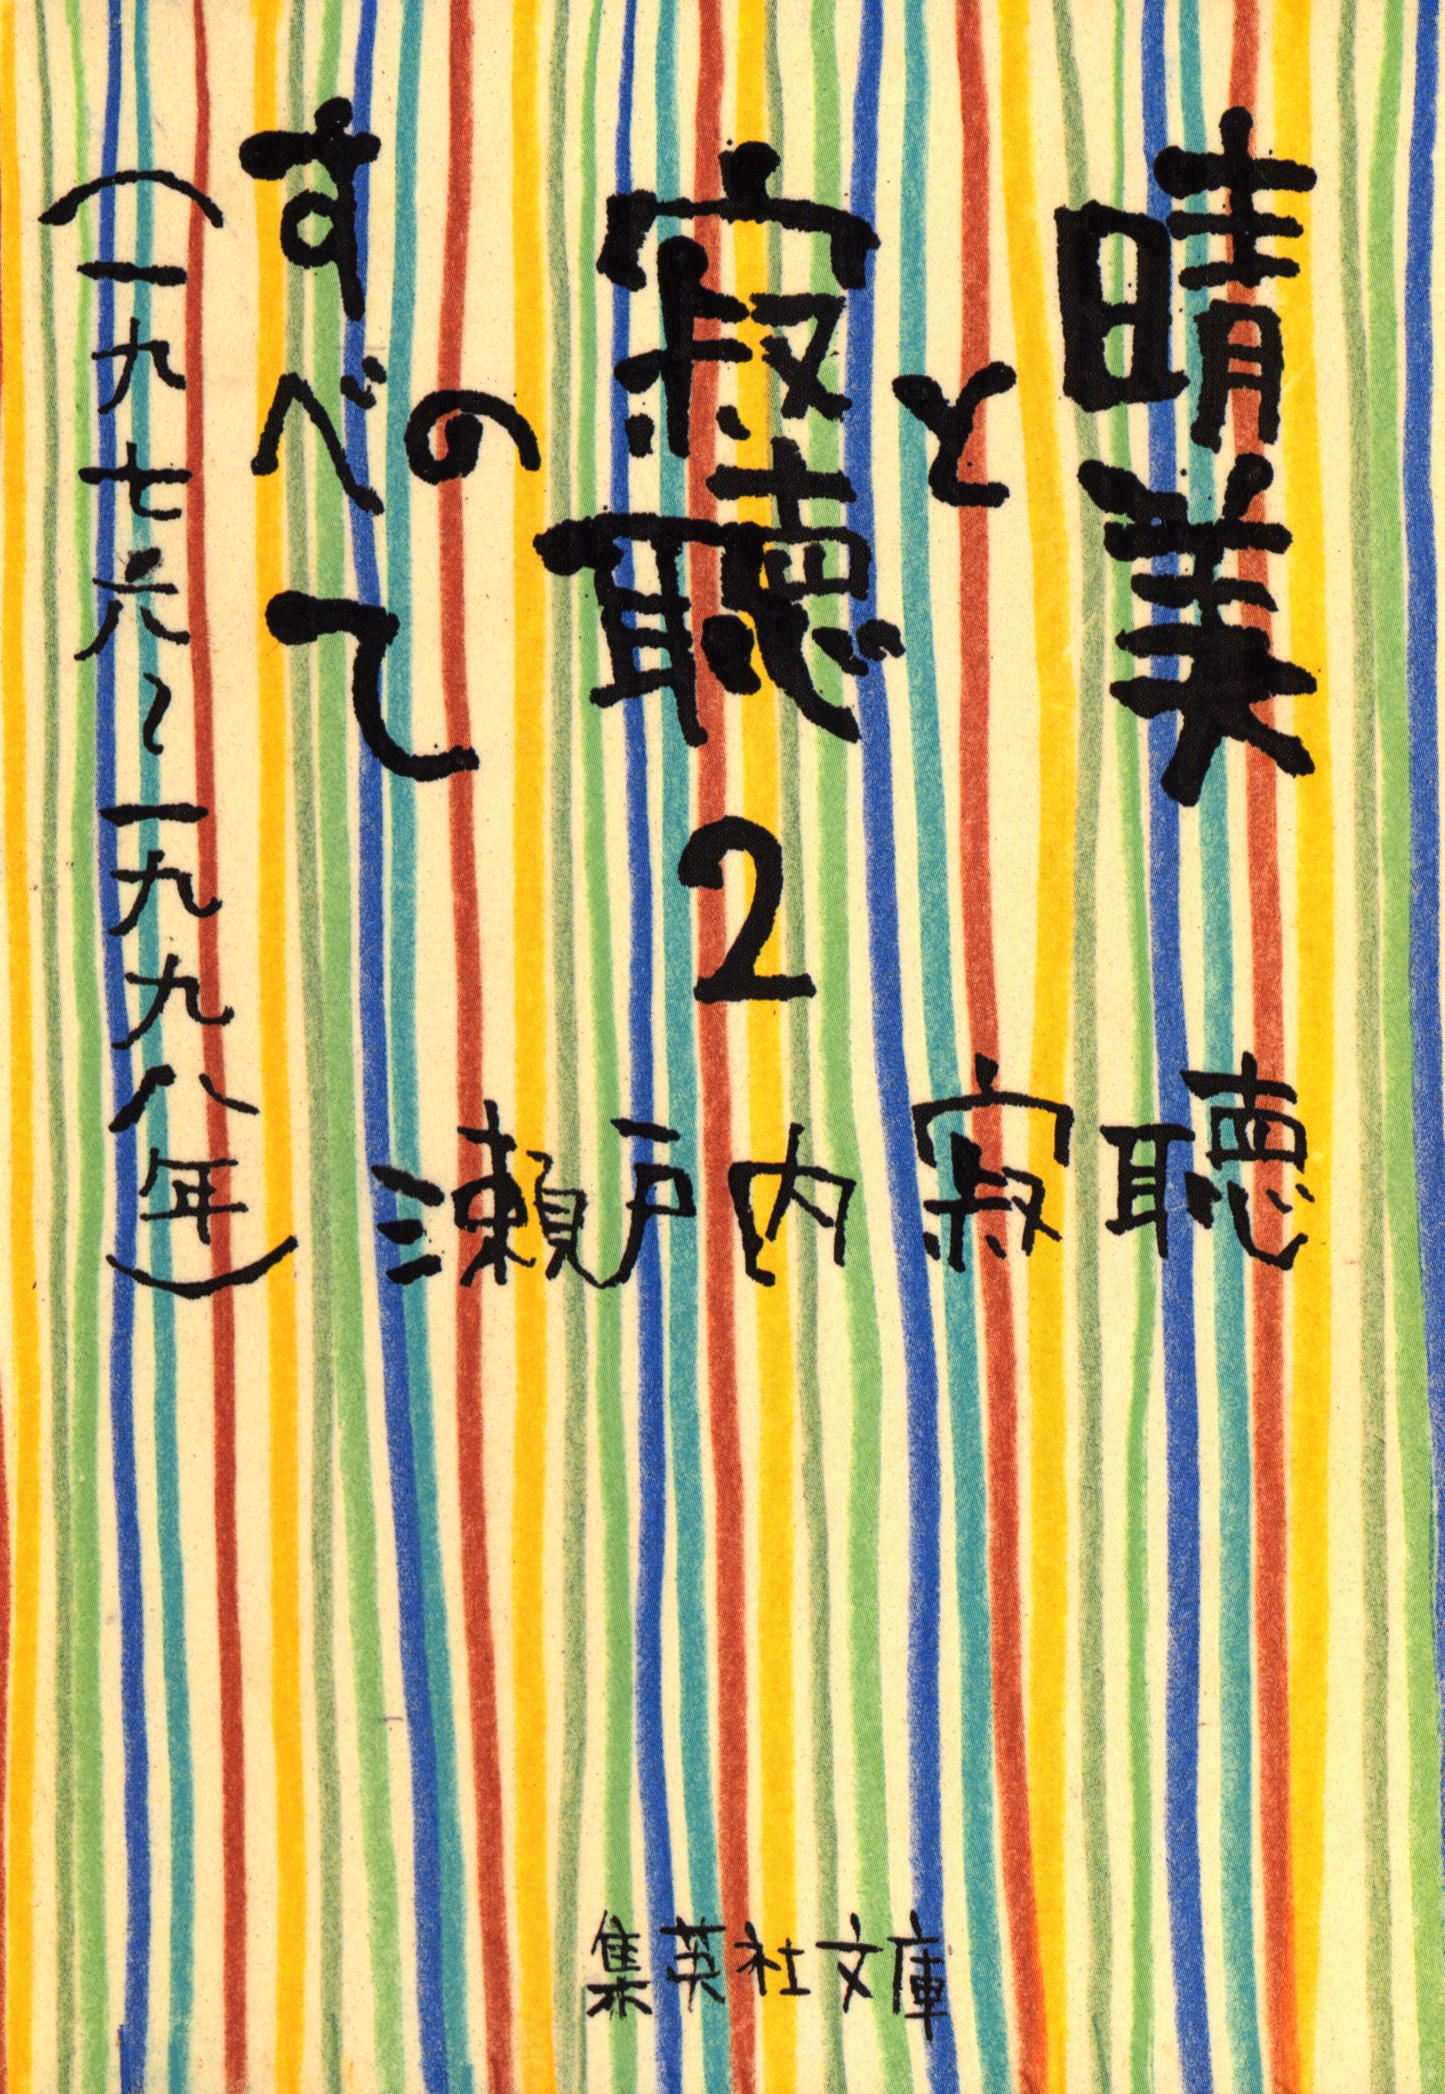 晴美と
寂聴の
すべて
2
（一九七六～一九九八年）
瀬戸内寂聴
集英社文庫